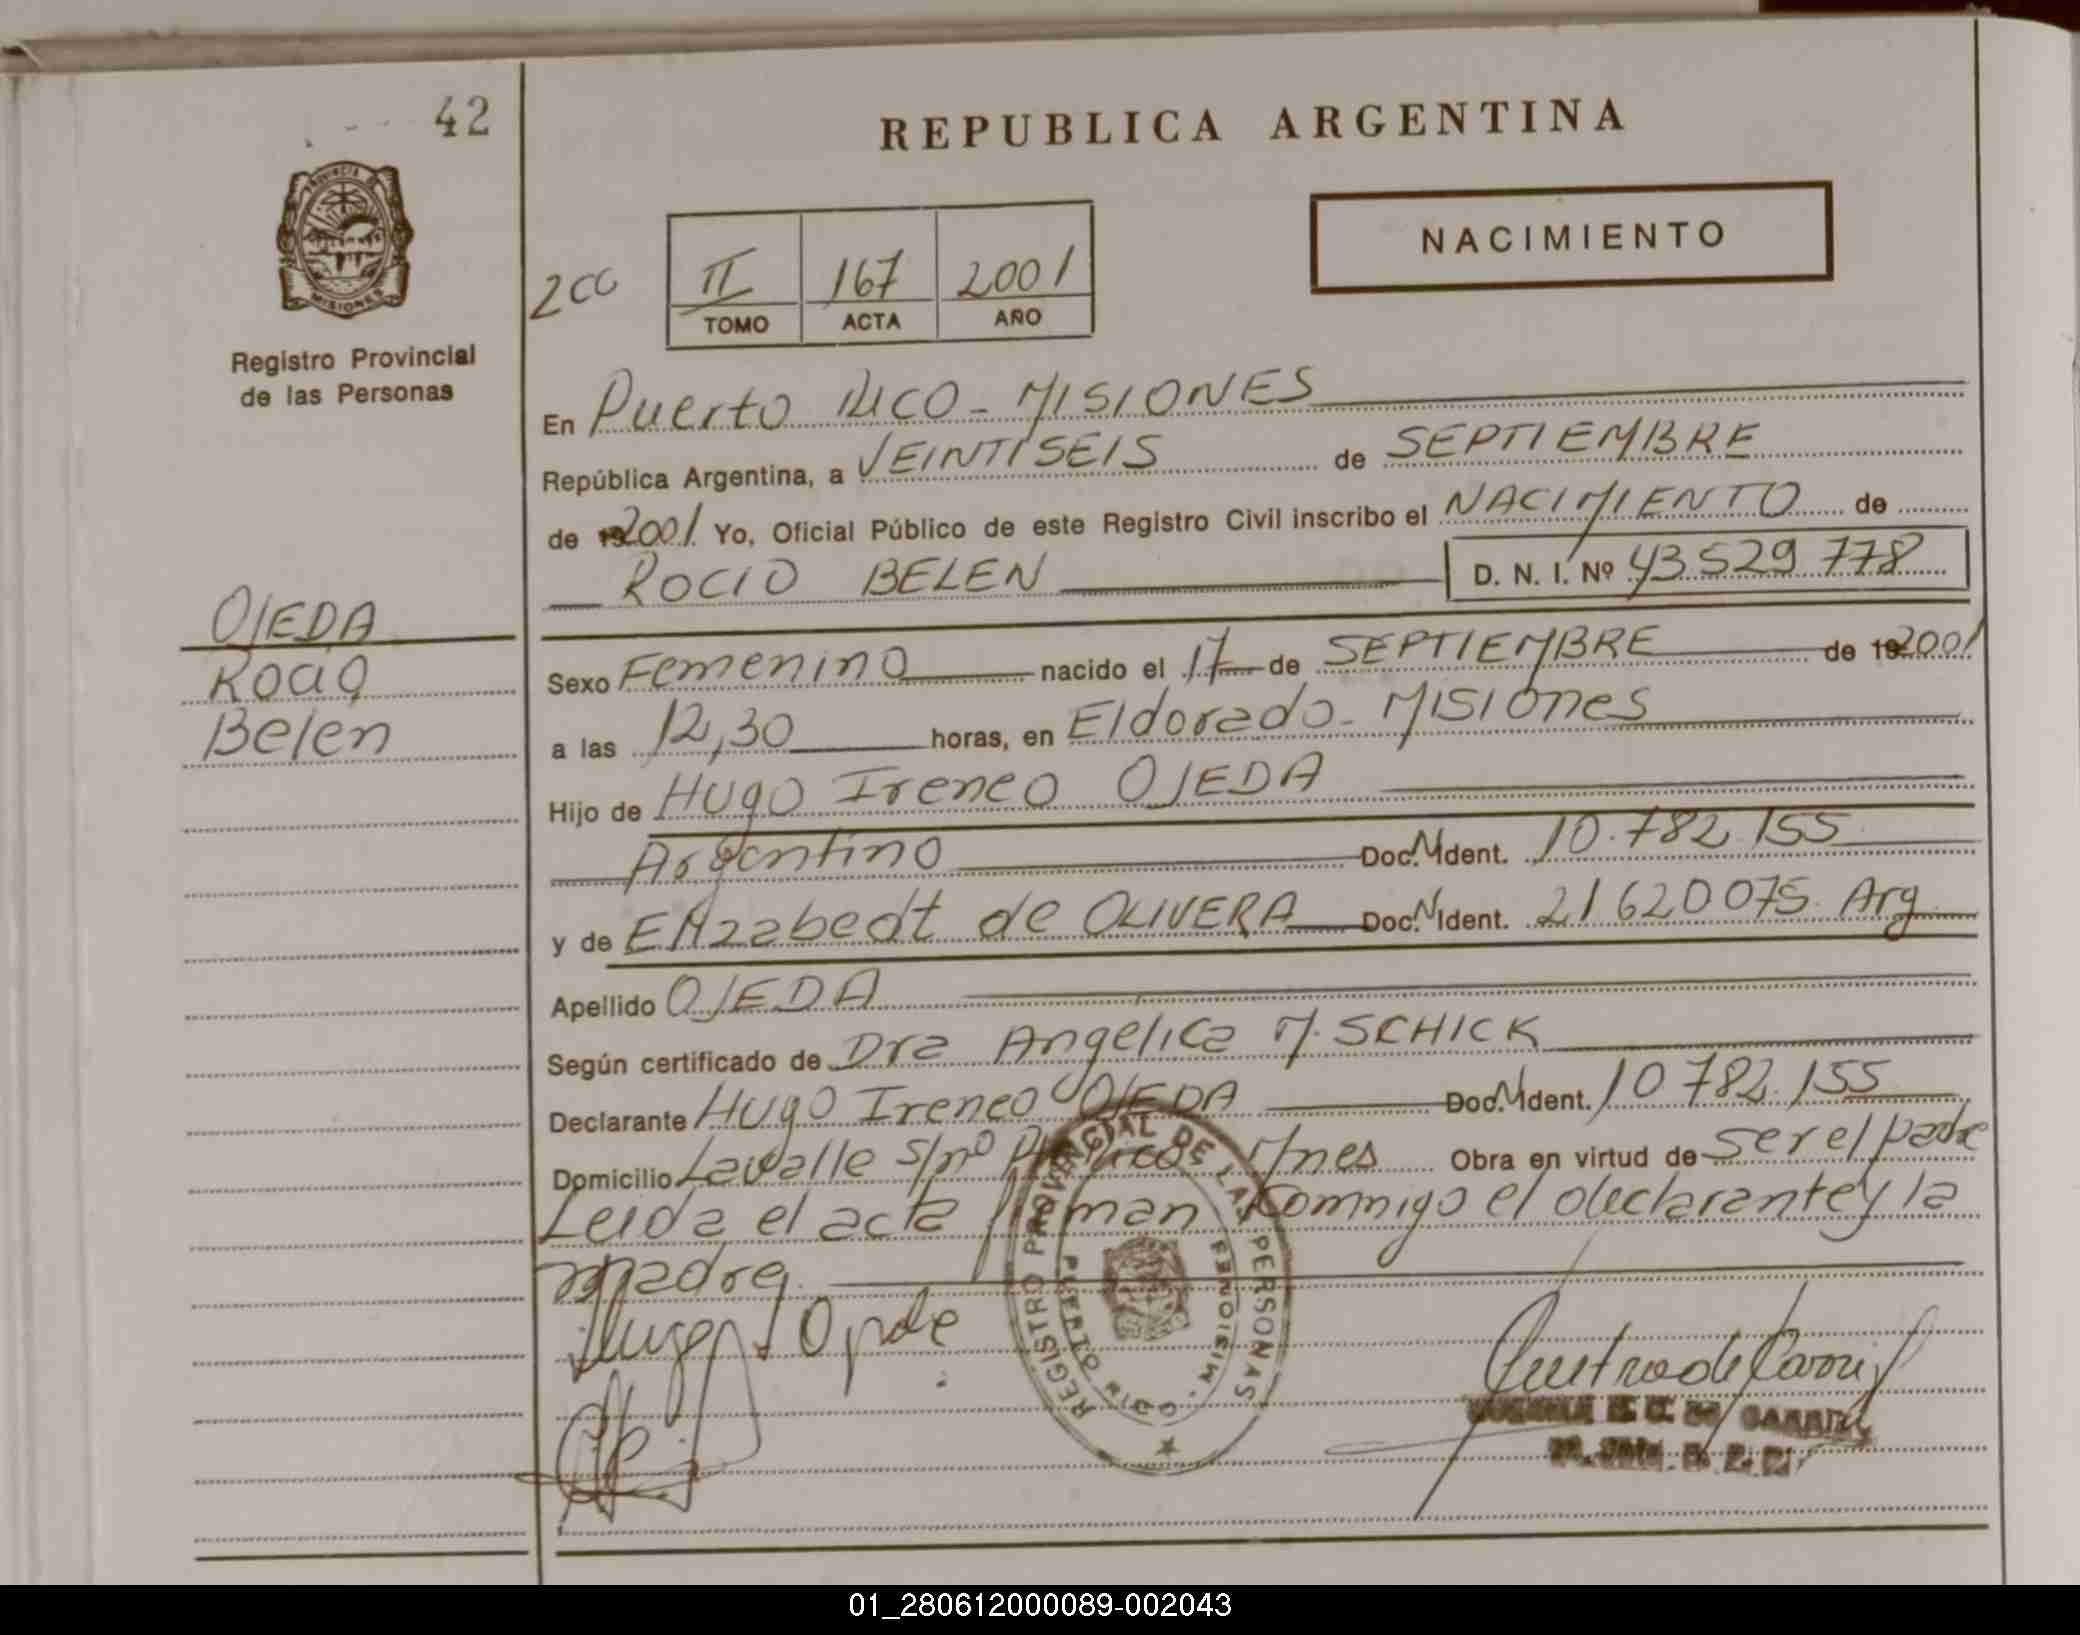 42
REPUBLICA ARGENTINA
PROVINCIA DE
MISIONES
Registro Provincial
de las Personas
NACIMIENTO
2cc
II 167 2001
TOMO ACTA AÑO
En Puerto Rico - MISIONES
República Argentina, a VEINTISEIS de SEPTIEMBRE
de 192001 Yo, Oficial Público de este Registro Civil inscribo el NACIMIENTO de
ROCIO BELEN D. N. I. Nº 43 529 778
OJEDA
Rocio
Belén
Sexo Femenino nacido el 17 de SEPTIEMBRE de 192001
a las 12,30 horas, en Eldorado - MISIONES
Hijo de Hugo Ireneo OJEDA
Argentino Doc. N Ident. 10.782.155
y de de OLIVERA Doc. N Ident. 21 620 075 Arg
Apellido OJEDA
Según certificado de Dra Angelica M. SCHICK
Declarante Hugo Ireneo OJEDA Doc. N Ident. 10 782.155
Domicilio Lavalle s/nº Pto Rico - Mnes Obra en virtud de ser el padre
Leida el acta firman conmigo el declarante y la
madre.
REGISTRO PROVINCIAL DE LAS PERSONAS
PUERTO RICO - MISIONES
01_280612000089-002043